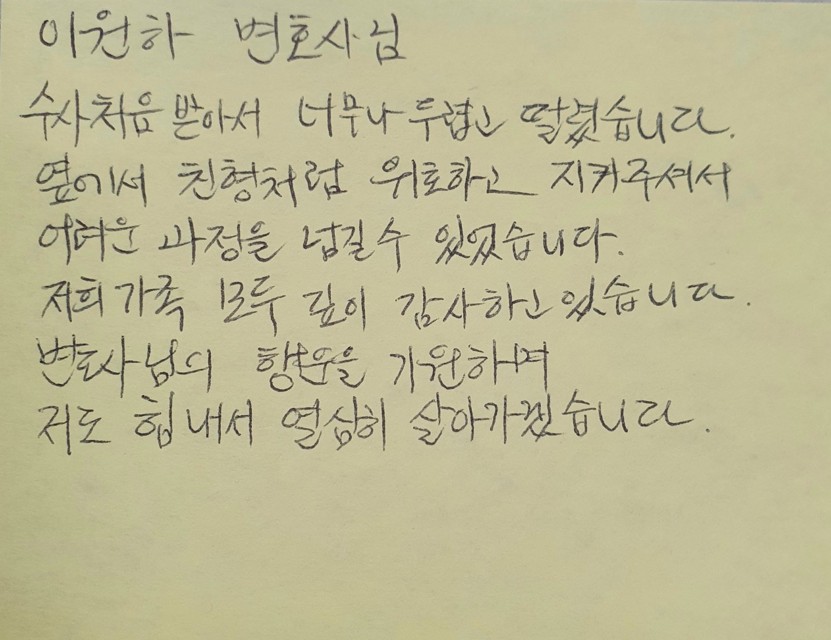 이원하 변호사님
수사처음 받아서 너무나 두렵고 떨렸습니다.
옆에서 친형처럼 위로하고 지켜주셔서
어려운 과정을 넘길수 있었습니다.
저희 가족 모두 깊이 감사하고 있습니다.
변호사님의 행운을 기원하며
저도 힘내서 열심히 살아가겠습니다.